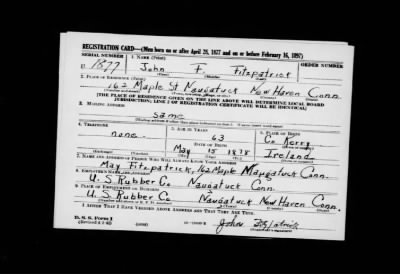 REGISTRATION CARD—(Men born on or after April 28, 1877 and on or before February 16, 1897)
SERIAL NUMBER 1. NAME (Print) ORDER NUMBER
U 1877 John F Fitzpatrick
(First) (Middle) (Last)
2. PLACE OF RESIDENCE (Print)
162 Maple St Naugatuck New Haven Conn.
[THE PLACE OF RESIDENCE GIVEN ON THE LINE ABOVE WILL DETERMINE LOCAL BOARD
JURISDICTION; LINE 2 OF REGISTRATION CERTIFICATE WILL BE IDENTICAL]
3. MAILING ADDRESS
same
4. TELEPHONE 5. AGE IN YEARS 6. PLACE OF BIRTH
none. 63 Co Kerry
DATE OF BIRTH
May 15 1878 Ireland
7. NAME AND ADDRESS OF PERSON WHO WILL ALWAYS KNOW YOUR ADDRESS
May Fitzpatrick, 162 Maple Naugatuck Conn.
8. EMPLOYER'S NAME AND ADDRESS
U.S. Rubber Co Naugatuck Conn.
9. PLACE OF EMPLOYMENT OR BUSINESS
U S Rubber Co Naugatuck New Haven Conn.
I AFFIRM THAT I HAVE VERIFIED ABOVE ANSWERS AND THAT THEY ARE TRUE.
D. S. S. Form 1
John Fitzpatrick